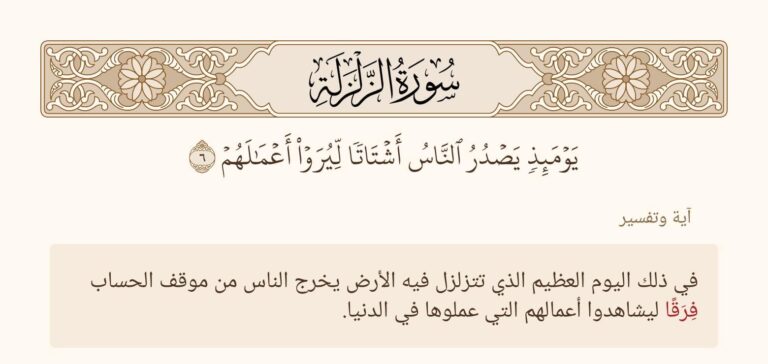 سُورَةُ الزَّلْزَلَةِ
يَوْمَئِذٖ يَصْدُرُ ٱلنَّاسُ أَشْتَاتٗا لِّيُرَوْاْ أَعْمَٰلَهُمْ ٦
آية وتفسير
في ذلك اليوم العظيم الذي تتزلزل فيه الأرض يخرج الناس من موقف الحساب
فِرَقًا ليشاهدوا أعمالهم التي عملوها في الدنيا.